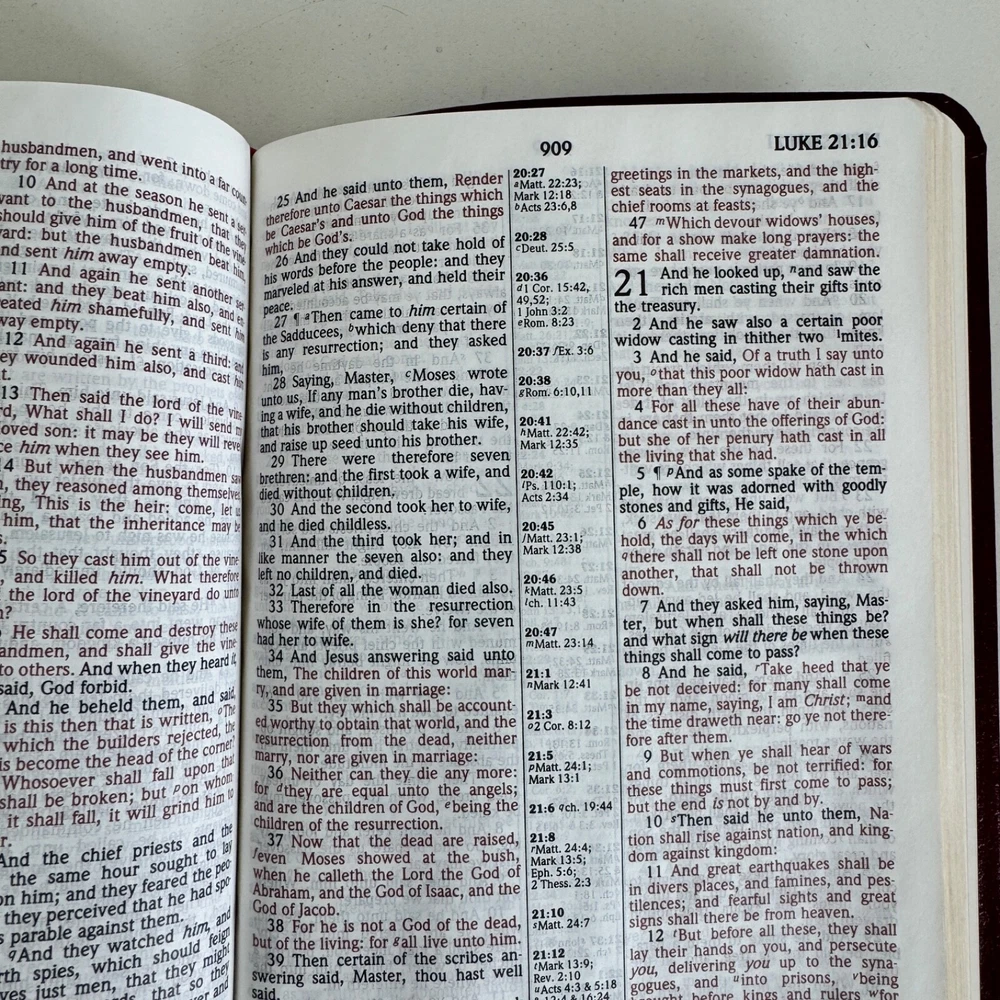 husbandmen, and went into a far
try for a long time.
10 And at the season he sent a
to the husbandmen, that they
should give him of the fruit of the vine
but the husbandmen beat him,
and sent him away empty.
11 And again he sent another
and they beat him also, and
him shamefully, and sent him
empty.
12 And again he sent a third: and
they wounded him also, and cast him
13 Then said the lord of the vine
What shall I do? I will send my
beloved son: it may be they will
him when they see him.
But when the husbandmen saw
they reasoned among themselves,
This is the heir: come, let us
him, that the inheritance may be
So they cast him out of the vine
and killed him. What therefore
the lord of the vineyard do unto
He shall come and destroy these
and shall give the vine-
to others. And when they heard it,
said, God forbid.
And he beheld them, and said,
is this then that is written, oThe
which the builders rejected, the
is become the head of the corner?
Whosoever shall fall upon that
shall be broken; but pon whom
it shall fall, it will grind him to
And the chief priests and the
the same hour sought to lay
on him; and they feared the peo-
they perceived that he had spo-
parable against them.
qAnd they watched him, and
spies, which should feign
just men, that they might
that so they
909
LUKE 21:16
25 And he said unto them, Render
therefore unto Caesar the things which
be Caesar's and unto God the things
which be God's.
26 And they could not take hold of
his words before the people: and they
marveled at his answer, and held their
peace.
27 ¶ aThen came to him certain of
the Sadducees, bwhich deny that there
is any resurrection; and they asked
him,
28 Saying, Master, cMoses wrote
unto us, If any man's brother die, hav-
ing a wife, and he die without children,
that his brother should take his wife,
and raise up seed unto his brother.
29 There were therefore seven
brethren: and the first took a wife, and
died without children.
30 And the second took her to wife,
and he died childless.
31 And the third took her; and in
like manner the seven also: and they
left no children, and died.
32 Last of all the woman died also.
33 Therefore in the resurrection
whose wife of them is she? for seven
had her to wife.
34 And Jesus answering said unto
them, The children of this world mar-
ry, and are given in marriage:
35 But they which shall be account-
ed worthy to obtain that world, and the
resurrection from the dead, neither
marry, nor are given in marriage:
36 Neither can they die any more:
for dthey are equal unto the angels;
and are the children of God, ebeing the
children of the resurrection.
37 Now that the dead are raised,
feven Moses showed at the bush,
when he calleth the Lord the God of
Abraham, and the God of Isaac, and the
God of Jacob.
38 For he is not a God of the dead,
but of the living: for gall live unto him.
39 Then certain of the scribes an-
swering said, Master, thou hast well
said.
20:27
aMatt. 22:23;
Mark 12:18
bActs 23:6,8
20:28
cDeut. 25:5
20:36
d1 Cor. 15:42,
49,52;
1 John 3:2
eRom. 8:23
20:37 fEx. 3:6
20:38
gRom. 6:10,11
20:41
hMatt. 22:42;
Mark 12:35
20:42
iPs. 110:1;
Acts 2:34
20:45
jMatt. 23:1;
Mark 12:38
20:46
kMatt. 23:5
lch. 11:43
20:47
mMatt. 23:14
21:1
nMark 12:41
21:3
o2 Cor. 8:12
21:5
pMatt. 24:1;
Mark 13:1
21:6 qch. 19:44
21:8
rMatt. 24:4;
Mark 13:5;
Eph. 5:6;
2 Thess. 2:3
21:10
sMatt. 24:7
21:12
tMark 13:9;
Rev. 2:10
uActs 4:3 & 5:18
& 12:4 & 16:24
greetings in the markets, and the high-
est seats in the synagogues, and the
chief rooms at feasts;
47 mWhich devour widows' houses,
and for a show make long prayers: the
same shall receive greater damnation.
21 And he looked up, nand saw the
rich men casting their gifts into
the treasury.
2 And he saw also a certain poor
widow casting in thither two 1mites.
3 And he said, Of a truth I say unto
you, othat this poor widow hath cast in
more than they all:
4 For all these have of their abun-
dance cast in unto the offerings of God:
but she of her penury hath cast in all
the living that she had.
5 ¶ pAnd as some spake of the tem-
ple, how it was adorned with goodly
stones and gifts, He said,
6 As for these things which ye be-
hold, the days will come, in the which
qthere shall not be left one stone upon
another, that shall not be thrown
down.
7 And they asked him, saying, Mas-
ter, but when shall these things be?
and what sign will there be when these
things shall come to pass?
8 And he said, rTake heed that ye
be not deceived: for many shall come
in my name, saying, I am Christ; mand
the time draweth near: go ye not there-
fore after them.
9 But when ye shall hear of wars
and commotions, be not terrified: for
these things must first come to pass;
but the end is not by and by.
10 sThen said he unto them, Na-
tion shall rise against nation, and king-
dom against kingdom:
11 And great earthquakes shall be
in divers places, and famines, and pes-
tilences; and fearful sights and great
signs shall there be from heaven.
12 tBut before all these, they shall
lay their hands on you, and persecute
you, delivering you up to the syna-
gogues, and uinto prisons, vbeing
brought before kings and rulers wfor